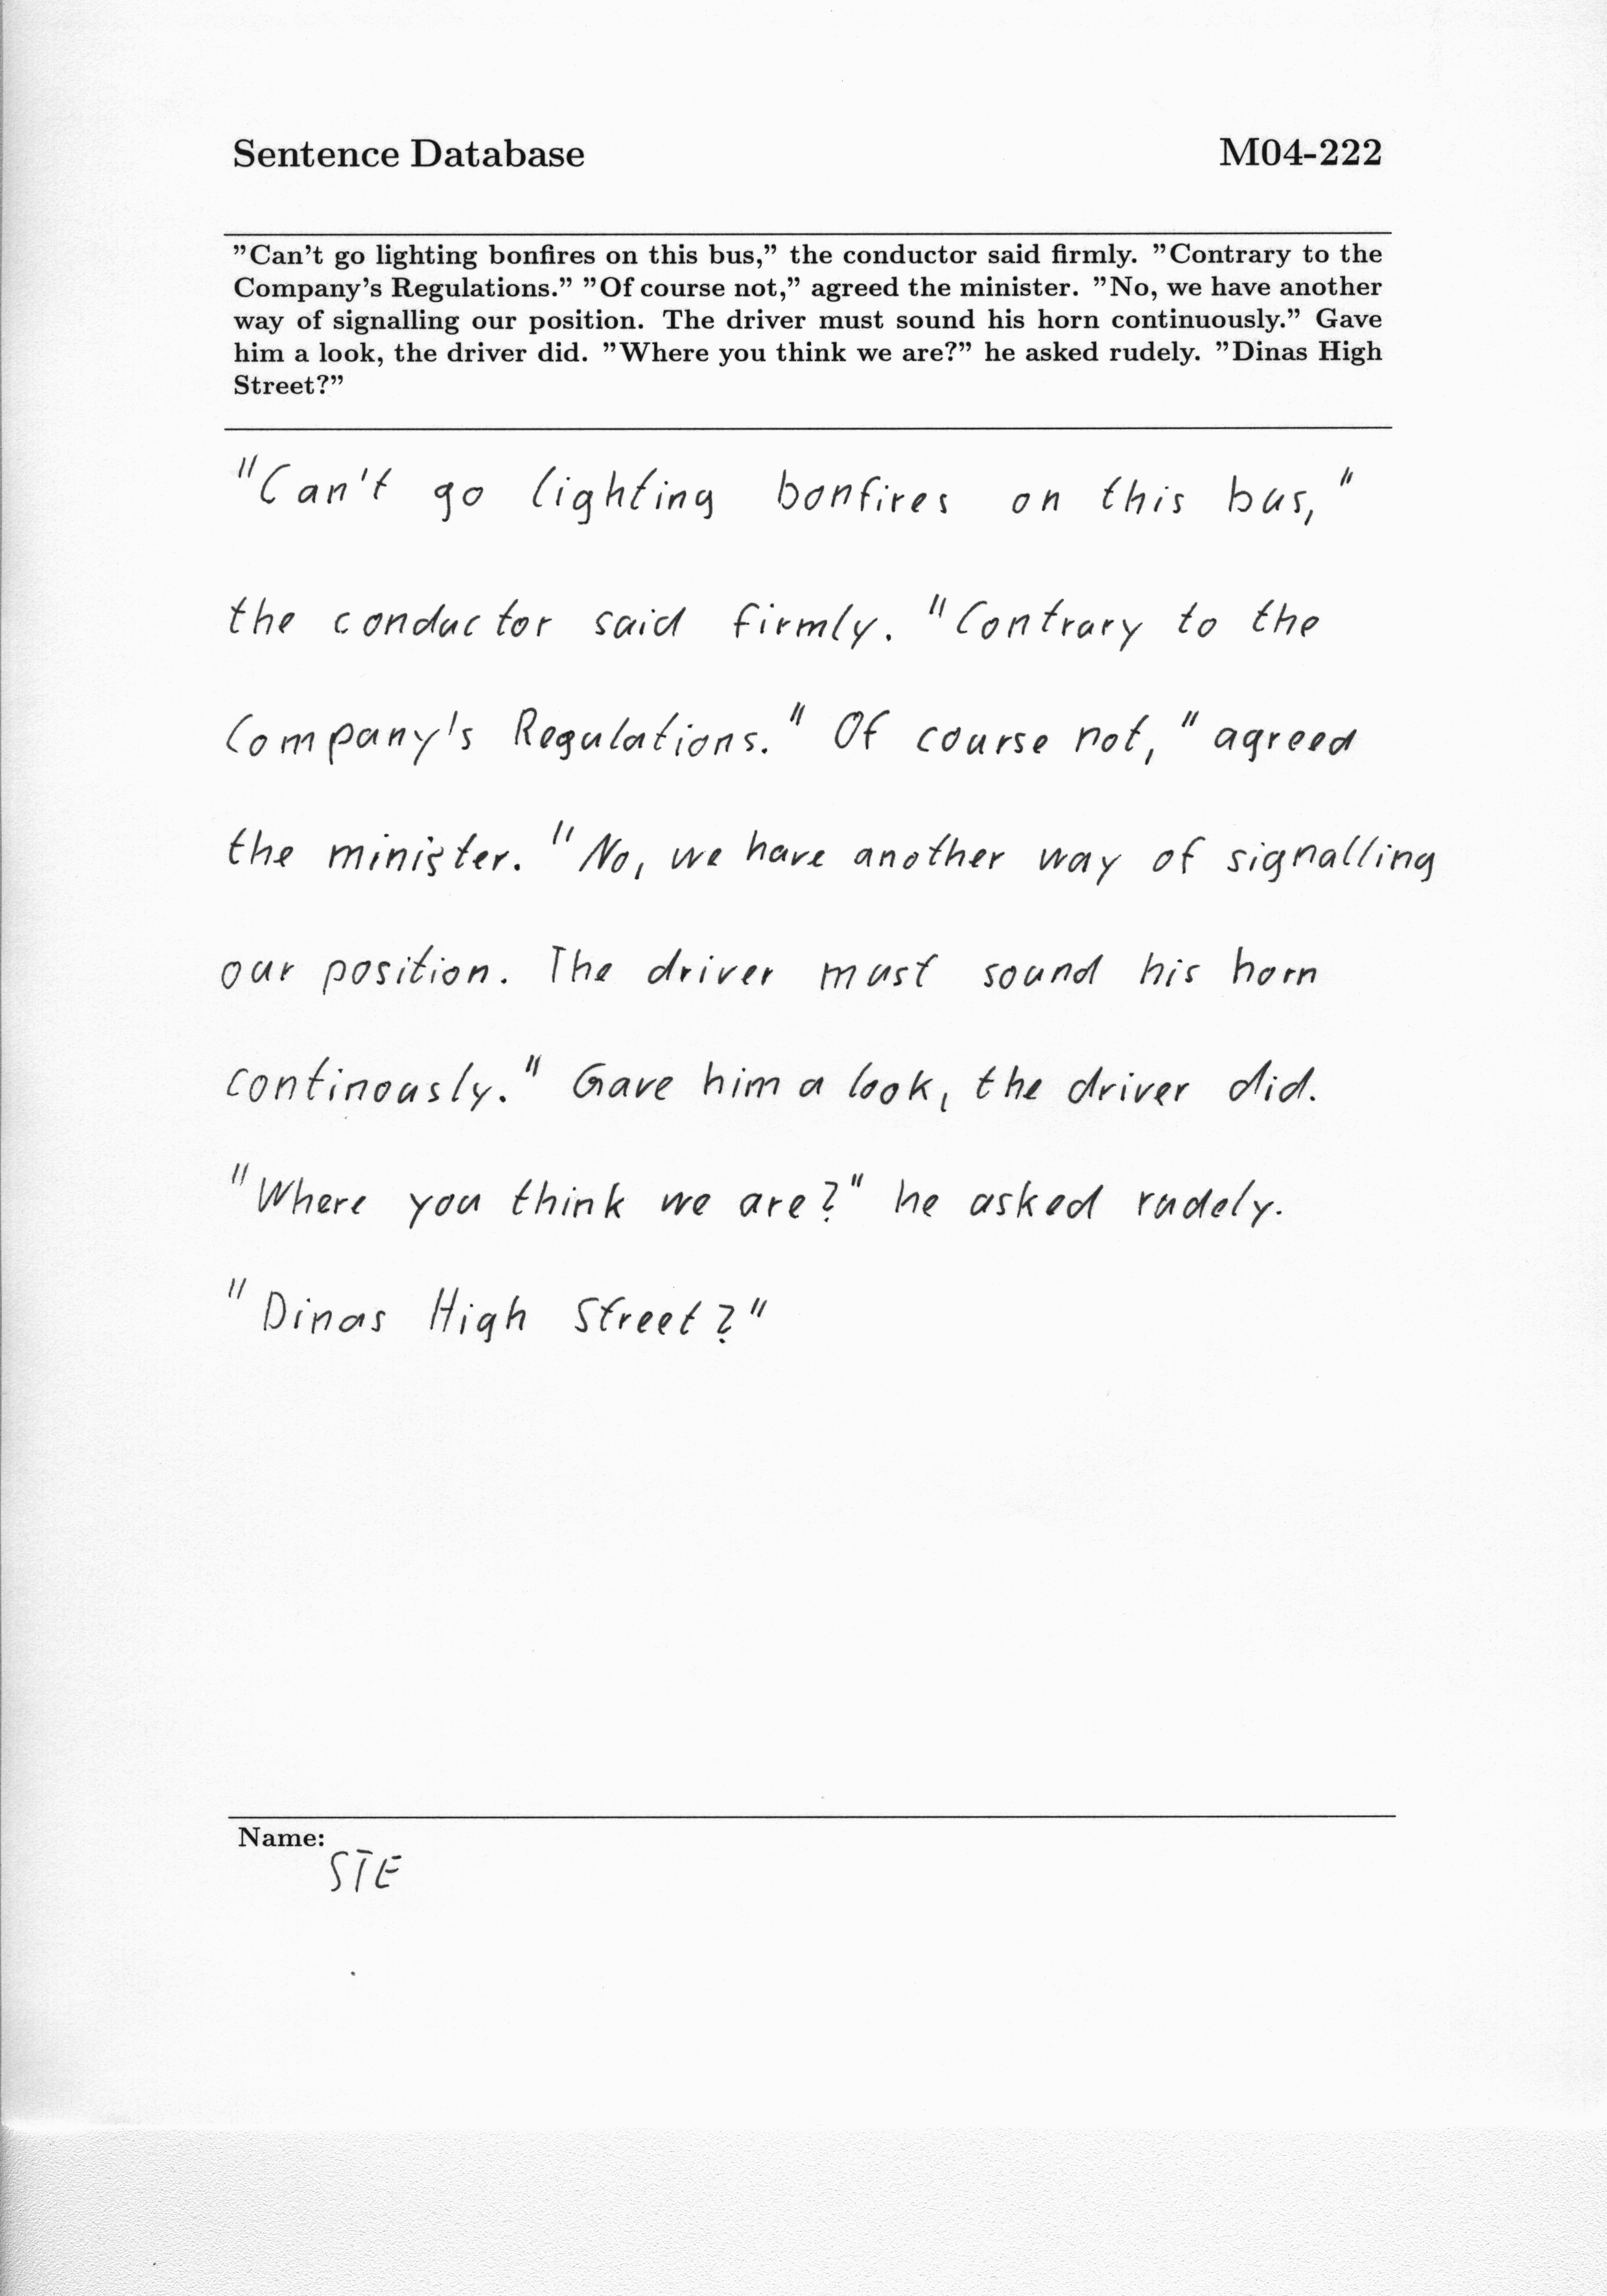 Sentence Database M04-222
”Can’t go lighting bonfires on this bus,” the conductor said firmly. ”Contrary to the
Company’s Regulations.” ”Of course not,” agreed the minister. ”No, we have another
way of signalling our position. The driver must sound his horn continuously.” Gave
him a look, the driver did. ”Where you think we are?” he asked rudely. ”Dinas High
Street?”
"Can't go lighting bonfires on this bus,"
the conductor said firmly. "Contrary to the
Company's Regulations." Of course not," agreed
the minister. "No, we have another way of signalling
our position. The driver must sound his horn
continously." Gave him a look, the driver did.
"Where you think we are?" he asked rudely.
"Dinas High Street?"
Name:
STE